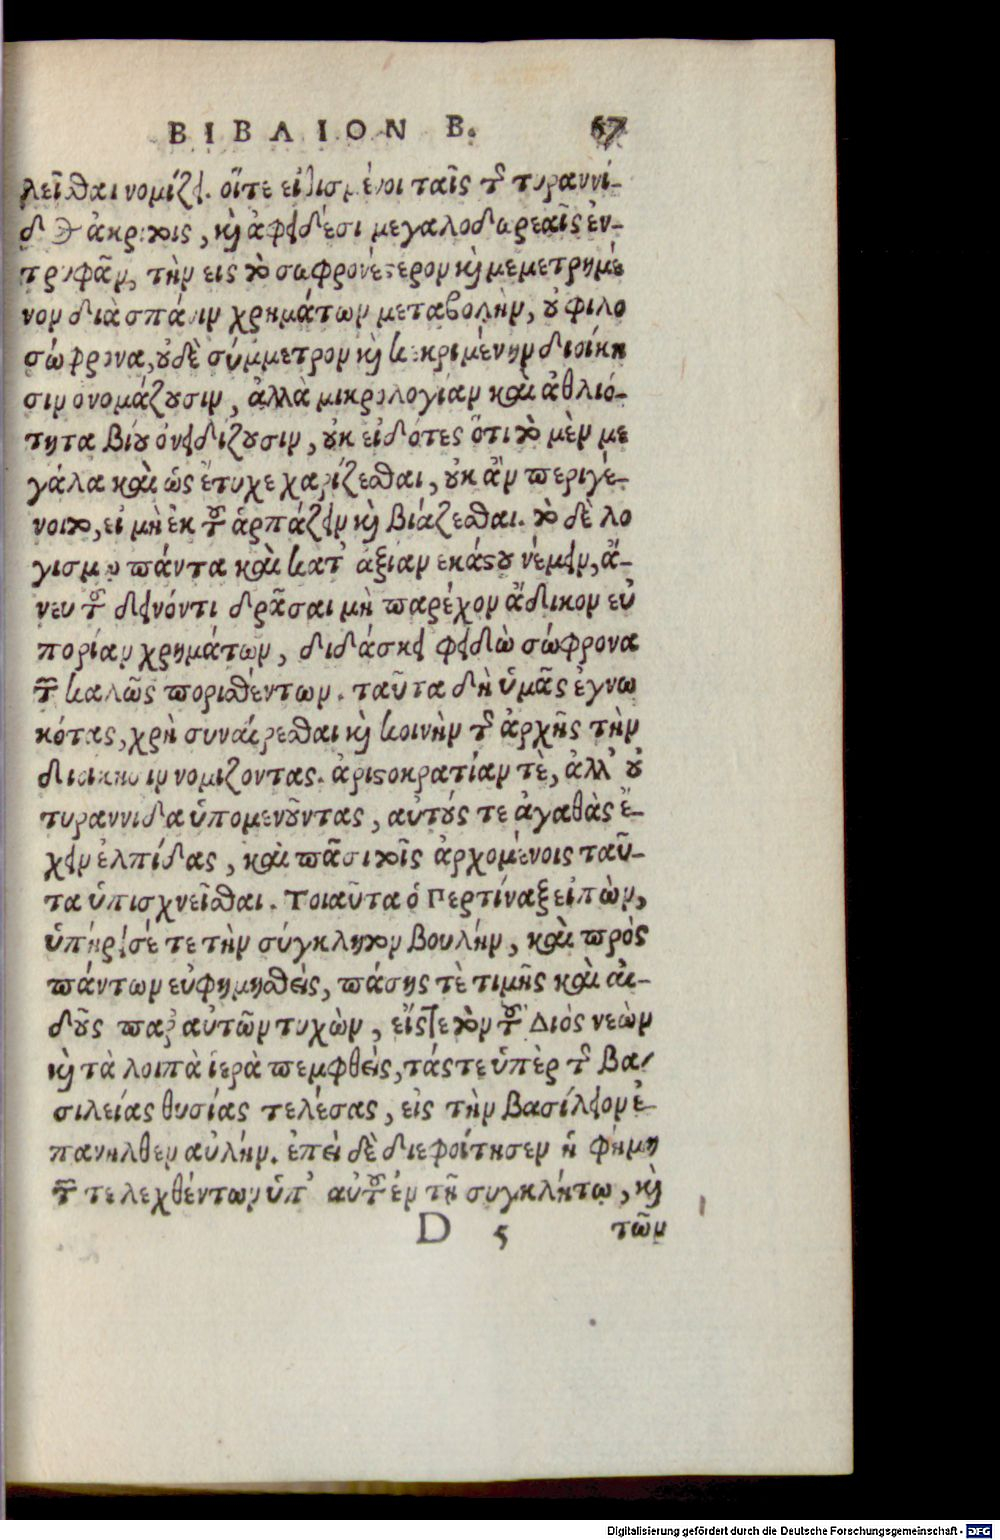 ΒΙΒΛΙΟΝ Β. 67
λεῖσθαι νομίζει. οἵτε εἰθισμένοι ταῖς τῆς τυραννί-
δος ἀκρίτοις, καὶ ἀφειδέσι μεγαλοδωρεαῖς ἐν-
τρυφᾶν, τὴν εις τὸ σωφρονέστερον καὶ μεμετρημέ
νον διὰ σπάνιν χρημάτων μεταβολὴν, οὐ φιλο
σώφρονα, οὐδὲ σύμμετρον καὶ κεκριμένην διοίκη
σιν ονομάζουσιν, ἀλλὰ μικρολογίαν καὶ ἀθλιό-
τητα βίου ὀνειδίζουσιν, οὐκ εἰδότες ὅτι τὸ μὲν με
γάλα καὶ ὡς ἔτυχε χαρίζεσθαι, οὐκ ἂν περιγέ-
νοιτο, εἰ μὴ ἐκ τοῦ ἁρπάζειν καὶ βιάζεσθαι. τὸ δὲ λο
γισμῷ πάντα καὶ κατ' ἀξίαν εκάστου νέμειν, ἄ-
νευ τοῦ δεινόν τι δρᾶσαι μὴ παρέχον ἄδικον εὐ
πορίαν χρημάτων, διδάσκει φειδὼ σώφρονα
τῶν καλῶς πορισθέντων. ταῦτα δὴ ὑμᾶς ἐγνω
κότας, χρὴ συναίρεσθαι καὶ κοινὴν τῆς ἀρχῆς τὴν
διοίκησιν νομιζοντας. ἀριστοκρατίαν τὲ, ἀλλ' οὐ
τυραννιδα ὑπομενοῦντας, αὐτούς τε ἀγαθὰς ἔ-
χειν ἐλπίδας, καὶ πᾶσι τοῖς ἀρχομένοις ταῦ-
τα ὑπισχνεῖσθαι. Τοιαῦτα ὁ Περτίναξ εἰπὼν,
ὑπήρεισέ τε τὴν σύγκλητον βουλήν, καὶ πρὸς
πάντων εὐφημηθεὶς, πάσης τὲ τιμῆς καὶ αἰ-
δοῦς παρ' αὐτῶν τυχὼν, εἴς τε τὸν τοῦ Διὸς νεὼν
καὶ τὰ λοιπὰ ἱερὰ πεμφθεὶς, τάς τε ὑπὲρ τῆς Βα-
σιλείας θυσίας τελέσας, εἰς τὴν βασίλειον ἐ-
πανηλθεν αὐλήν. ἐπεὶ δὲ διεφοίτησεν ἡ φήμη
τῶν τε λεχθέντων ὑπ' αὐτοῦ ἐν τῇ συγκλήτῳ, καὶ
D 5 τῶν
Digitalisierung gefördert durch die Deutsche Forschungsgemeinschaft - DFG